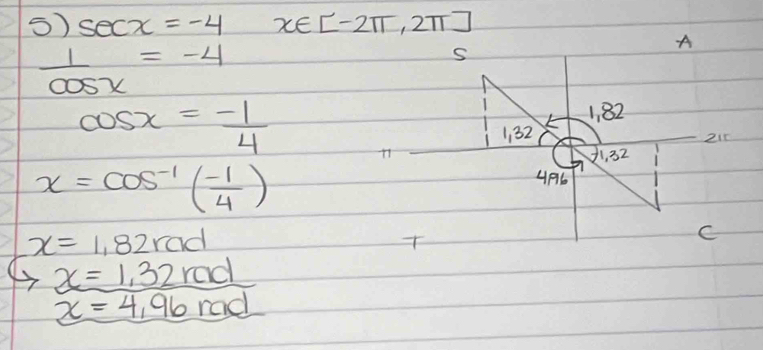 5) sec x = -4   x∈[-2π, 2π]
1/cosx = -4
cosx = -1/4
x = cos⁻¹(-1/4)
x = 1,82 rad
↳ x = 1,32 rad
x = 4,96 rad
S A
1,82
1,32 2π
π 1,32
4,96
T C